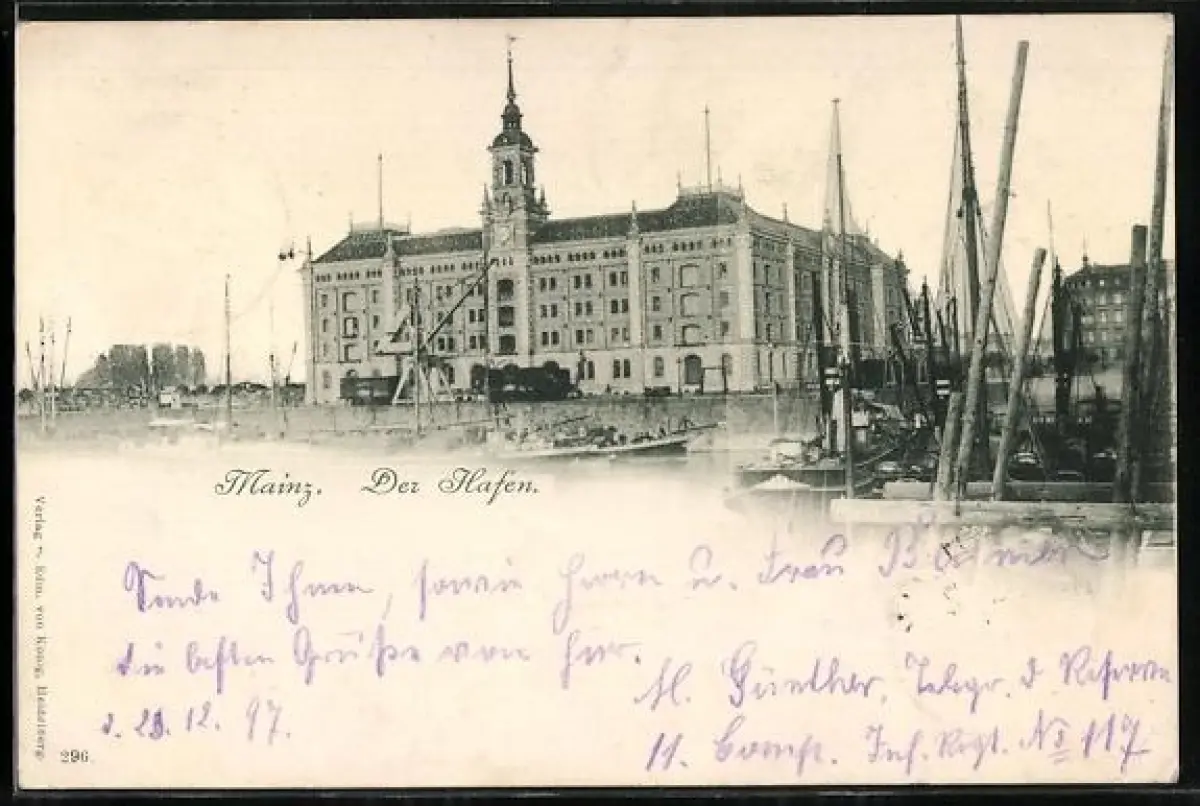 Mainz. Der Hafen.
Sende Ihnen, sowie Herrn u. Frau
die besten Grüße von hier.
d. 12. 97.
M. Günther, Telegr. d Reserve
11. Comp. Inf. Regt. No 117
Verlag v. Edm. von König, Heidelberg
296.